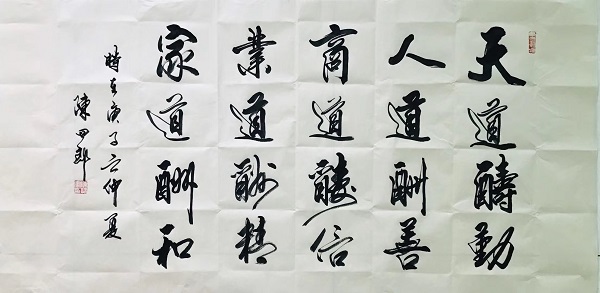 天道酬勤
人道酬善
商道酬信
業道酬精
家道酬和
時在庚子之仲夏